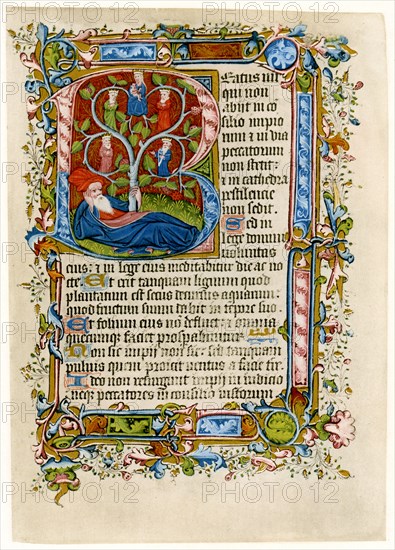 Beatus uir
qui non
abijt in co
silio impio
rum & in uia
peccatorum
non stetit:
& in cathedra
pestilencie
non sedit.
Sed in
lege domini
uoluntas
eius: & in lege eius meditabitur die ac no
cte Et erit tanquam lignum quod
plantatum est secus decursus aquarum:
quod fructum suum dabit in tempore suo
Et folium eius no defluet: & omnia
quecumque faciet prosperabuntur:
Non sic impij non sic: sed tanquam
puluis quem proicit uentus a facie terre
Ideo non resurgunt impij in iudicio
neque peccatores in consilio iustorum
PHOTO12